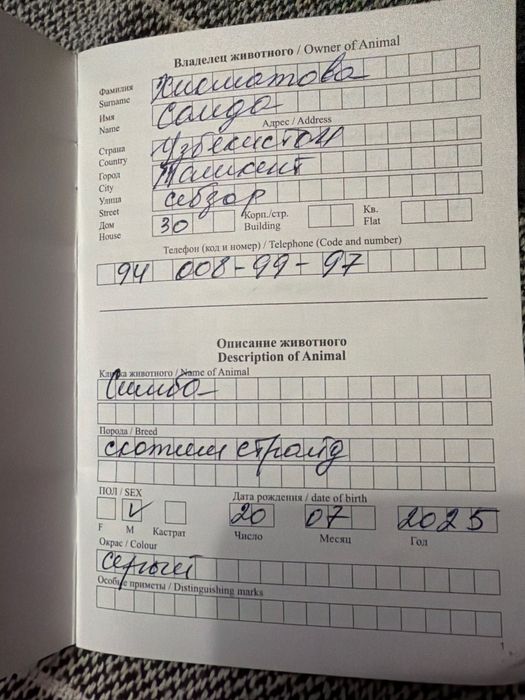 Владелец животного / Owner of Animal
Фамилия
Surname
Хикматова
Имя
Name
Саида
Адрес / Address
Страна
Country
Узбекистон
Город
City
Ташкент
Улица
Street
себзор
Дом
House
30
Корп./стр.
Building
Кв.
Flat
Телефон (код и номер) / Telephone (Code and number)
94 008-99-97
Описание животного
Description of Animal
Кличка животного / Name of Animal
Симба
Порода / Breed
скотиш страйд
ПОЛ / SEX
Дата рождения / date of birth
✓ 20 07 2025
F M Кастрат Число Месяц Год
Окрас / Colour
серый
Особые приметы / Distinguishing marks
1